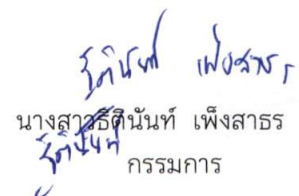 ฐิตินันท์ เพ็งสาธร
นางสาวธิตินันท์ เพ็งสาธร
ฐิตินันท์
กรรมการ